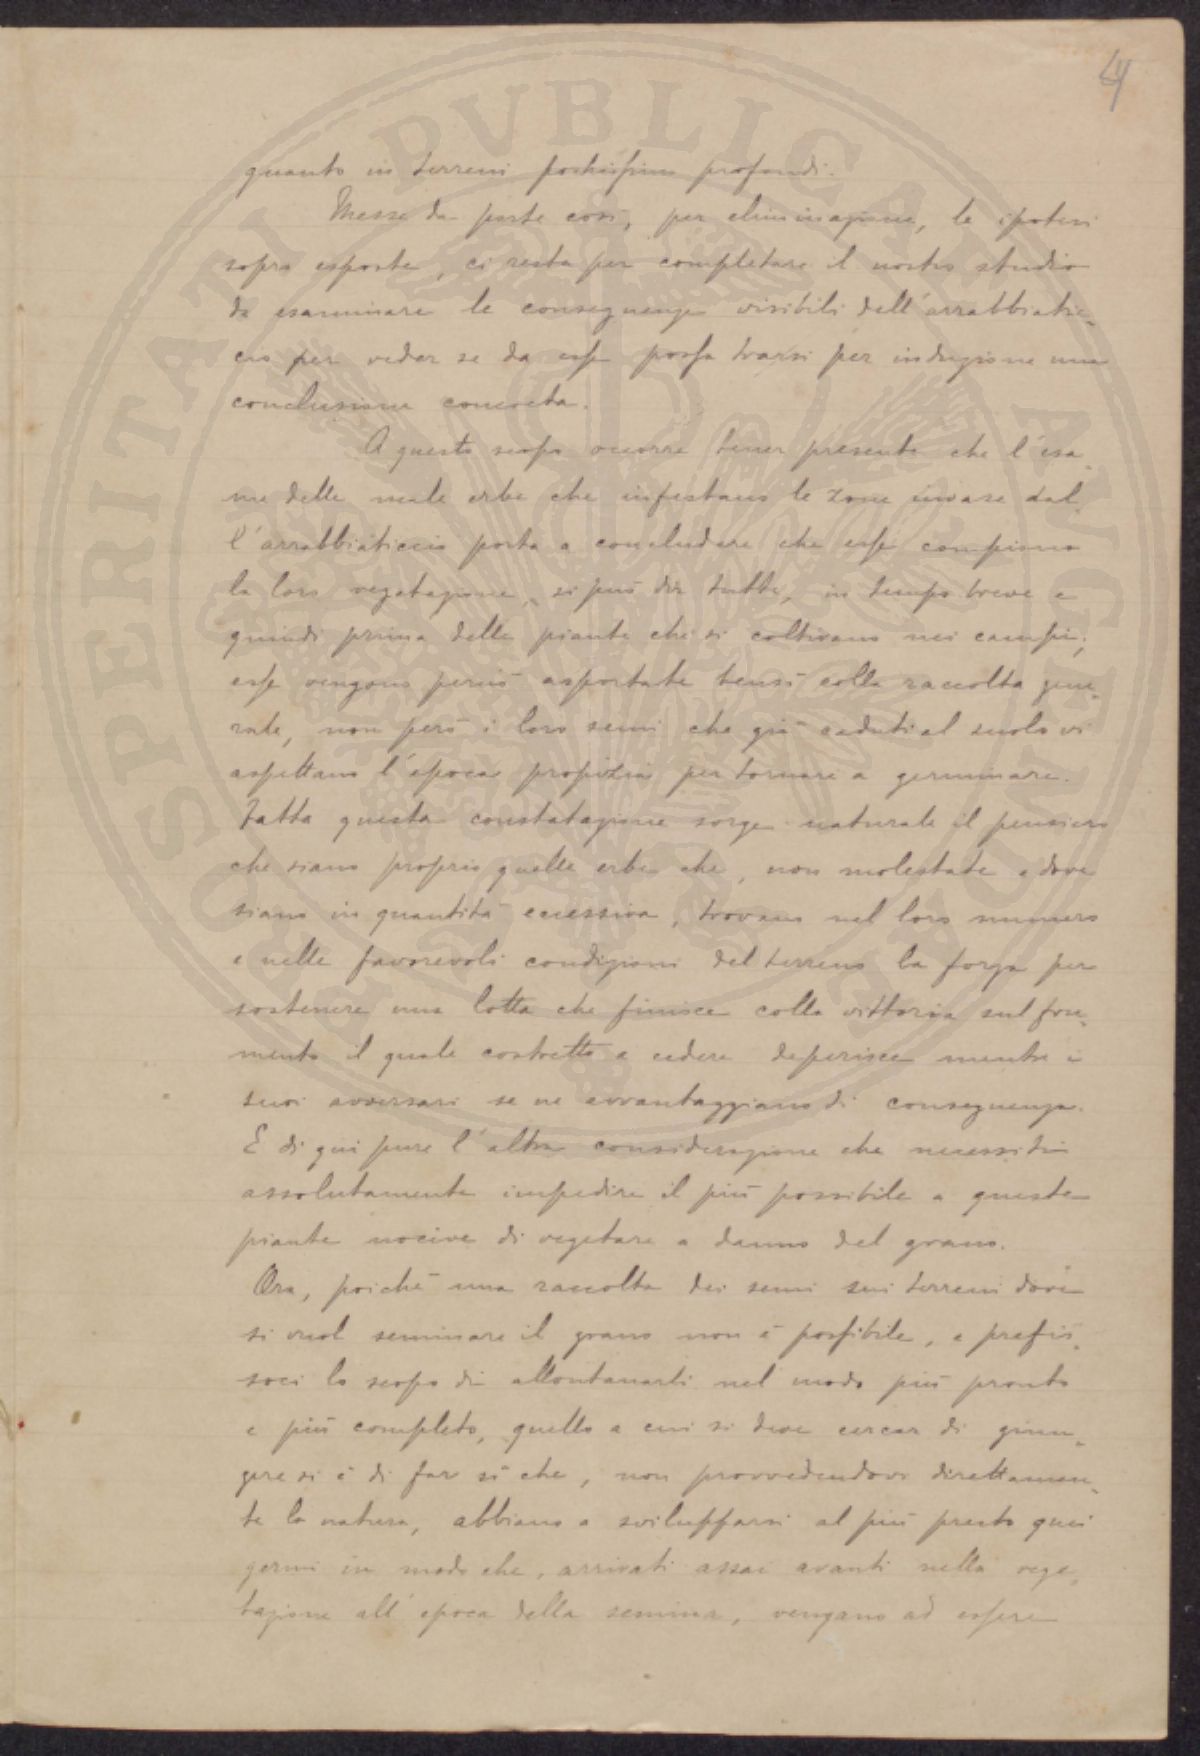 4
quanto in terreni pochissimo profondi.
Messe da parte così, per eliminazione, le ipotesi
sopra esposte, ci resta per completare il nostro studio
da esaminare le conseguenze visibili dell'arrabbiatic-
cio per veder se da esse possa trarsi per induzione una
conclusione concreta.
A questo scopo occorre tener presente che l'esa-
me delle male erbe che infestano le zone invase dal-
l'arrabbiaticcio porta a concludere che esse compiono
la loro vegetazione, si può dir tutte, in tempo breve e
quindi prima delle piante che si coltivano nei campi;
esse vengono perciò asportate bensì colla raccolta gene-
rale, non però i loro semi che già caduti al suolo vi
aspettano l'epoca propizia per tornare a germinare.
Fatta questa constatazione sorge naturale il pensiero
che siano proprio quelle erbe che, non molestate e dove
siano in quantità eccessiva, trovano nel loro numero
e nelle favorevoli condizioni del terreno la forza per
sostenere una lotta che finisce colla vittoria sul fru-
mento il quale costretto a cedere deperisce mentre i
suoi avversari se ne avvantaggiano di conseguenza.
E di qui pure l'altra considerazione che necessiti
assolutamente impedire il più possibile a queste
piante nocive di vegetare a danno del grano.
Ora, poichè una raccolta dei semi sui terreni dove
si vuol seminare il grano non è possibile, e prefis-
soci lo scopo di allontanarli nel modo più pronto
e più completo, quello a cui si deve cercar di giun-
gere si è di far sì che, non provvedendovi direttamen-
te la natura, abbiano a svilupparsi al più presto quei
germi in modo che, arrivati assai avanti nella vege-
tazione all'epoca della semina, vengano ad essere
PROSPERITATI PVBLICAE AVGENDAE